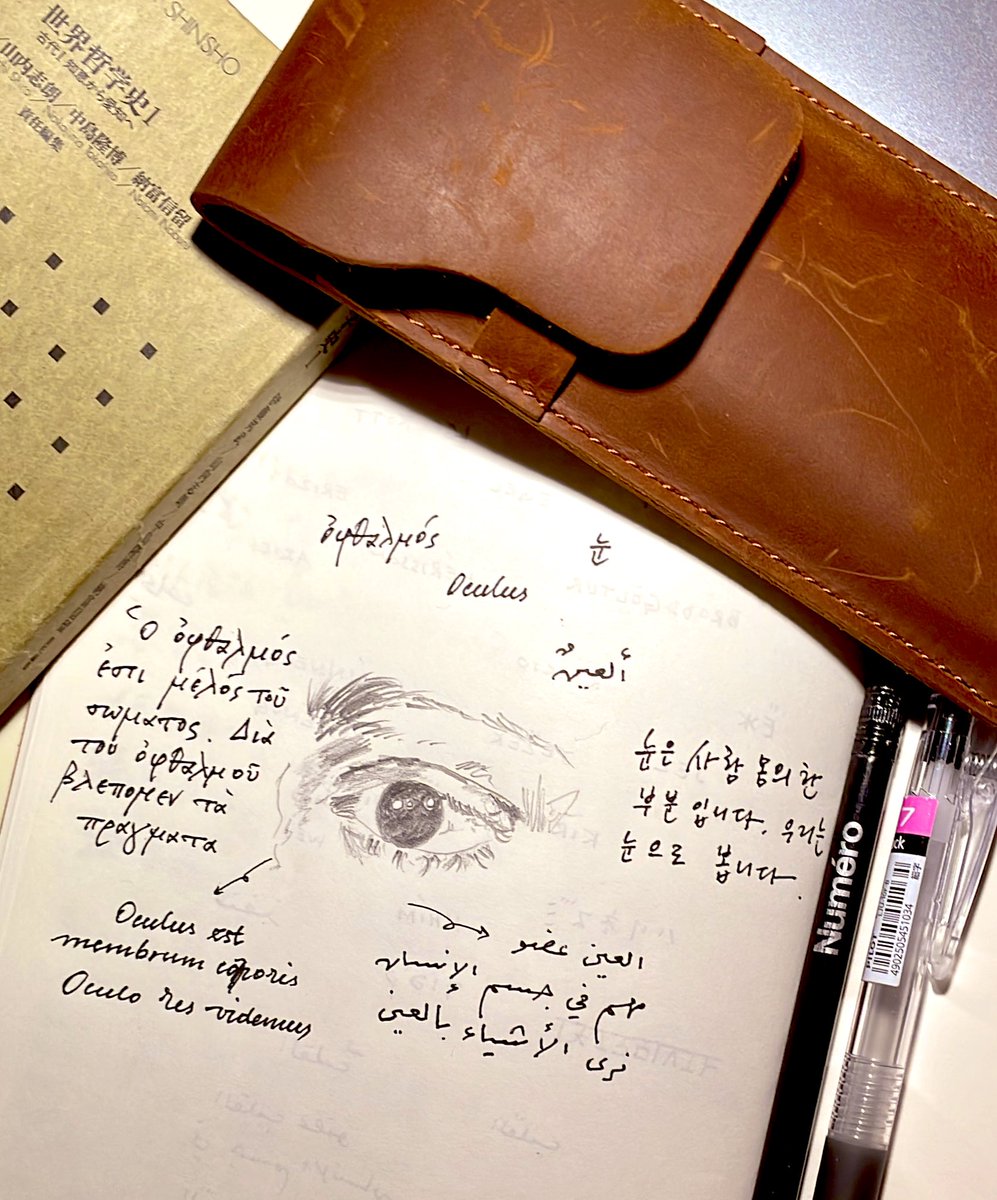 SHINSHO
世界哲学史1
古代Ⅰ 知恵から愛知へ
山内志朗／中島隆博／納富信留
Nakajima Takahiro／Notomi Noburu
責任編集
ὀφθαλμός
눈
Oculus
ألعينٌ
Ὁ ὀφθαλμός
ἐστι μέλός τοῦ
σωματος. Διὰ
τοῦ ὀφθαλμοῦ
βλεπομεν τὰ
πραγματα
눈은 사람 몸의 한
부분 입니다. 우리는
눈으로 봅니다.
Oculus est
membrum corporis
Oculo res videmus
العين عضو
مهم في جسم الإنسان
نرى الأشياء بألعين
Numéro
7
ck
PILOT
細字
4902505451034